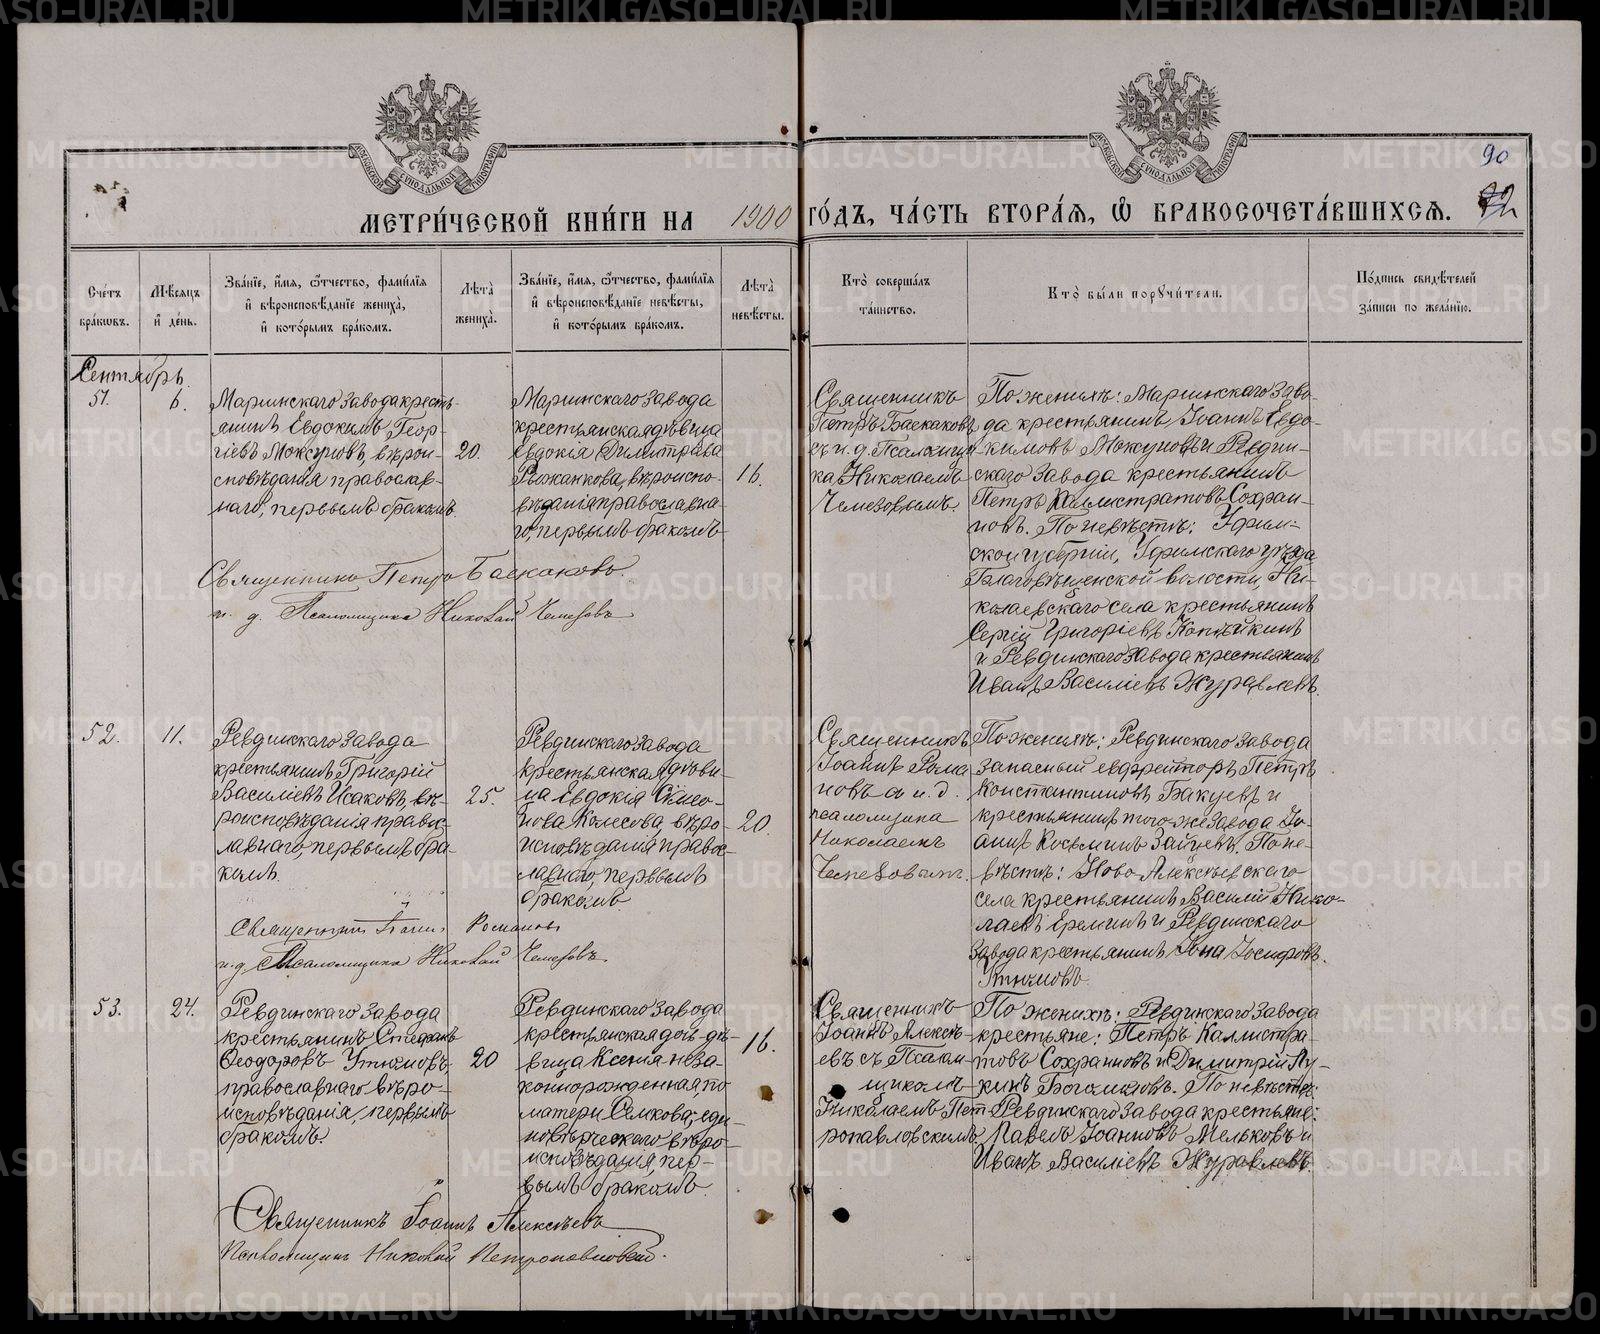 МЕТРИ́ЧЕСКОЙ КНИ́ГИ НА 1900 ГО́ДЪ, ЧА́СТЬ ВТОРА́Ѧ, Ѽ БРАКОСОЧЕТА́ВШИХСѦ.
90
Сче́тъ бра́кѡвъ.
Мѣ́сѧцъ и҆ де́нь.
Зва́нїе, и҆́мѧ, ѻ҆́тчество, фами́лїѧ и҆ вѣроисповѣ́данїе жениха̀, и҆ кото́рымъ бра́комъ.
Лѣ́та̀ жениха̀.
Зва́нїе, и҆́мѧ, ѻ҆́тчество, фами́лїѧ и҆ вѣроисповѣ́данїе невѣ́сты, и҆ кото́рымъ бра́комъ.
Лѣ́та̀ невѣ́сты.
Кто̀ соверша́лъ та́инство.
Кто̀ бы́ли порꙋчи́тели.
По́дпись свидѣ́телей за́писи по жела́нїю.
Сентябрь.
51.
6.
Маріинскаго завода кресть-
янинъ Евдокимъ Геор-
гіевъ Моксуновъ, вѣрои-
сповѣданія православ-
наго, первымъ бракомъ.
20.
Маріинскаго завода
крестьянская дѣвица
Евдокія Димитріева
вѣроиспо-
вѣданія православна-
го, первымъ бракомъ
16.
Священникъ
Петръ Баскаковъ
съ и. д. Псаломщи-
ка Николаемъ
Чемезовымъ.
По женихѣ: Маріинскаго Заво-
да крестьянинъ Іоаннъ Евдо-
кимовъ Моксуновъ и Ревдин-
скаго Завода крестьянинъ
Петръ Каллистратовъ Сохран-
новъ. По невѣстѣ: Уфим-
ской губерніи, Уфимскаго уѣзда
Благовѣщенской волости, Ни-
колаевскаго села крестьянинъ
Сергій Григоріевъ Копѣйкинъ
и Ревдинскаго завода крестьянинъ
Иванъ Василіевъ Журавлевъ.
Священникъ Петръ Баскаковъ.
и. д. Псаломщика Николай Чемезовъ
52.
11.
Ревдинскаго завода
крестьянинъ Григорій
Василіевъ Исаковъ, вѣ-
роисповѣданія правос-
лавнаго, первымъ бра-
комъ.
25.
Ревдинскаго завода
крестьянская дѣви-
ца Евдокія Симео-
нова Колесова, вѣро-
исповѣданія правос-
лавнаго, первымъ
бракомъ.
20.
Священникъ
Іоаннъ Рома
новъ съ и. д.
псаломщика
Николаемъ
Чемезовымъ.
По женихѣ: Ревдинскаго завода
запасный ефрейторъ Петръ
Константиновъ Бакуевъ и
крестьянинъ того-же завода Іо-
аннъ Косьминъ Зайцевъ. По не-
вѣстѣ: Ново Алексѣевскаго
села крестьянинъ Василій Нико-
лаевъ Ереминъ и Ревдинскаго
завода крестьянинъ Іона Іосифовъ
Утюмовъ.
Священникъ Іоаннъ Романовъ
и. д. Псаломщика Николай Чемезовъ.
53.
24.
Ревдинскаго завода
крестьянинъ Стефанъ
Ѳеодоровъ Утюмовъ,
православнаго вѣро-
исповѣданія, первымъ
бракомъ.
20
Ревдинскаго завода
крестьянская дочь дѣ-
вица Ксенія неза-
коннорожденная, по
матери Семкова, еди-
новѣрческаго вѣро-
исповѣданія, пер-
вымъ бракомъ.
16.
Священникъ
Іоаннъ Алексѣ-
евъ съ Псалом-
щикомъ
Николаемъ Пет
ропавловскимъ.
По женихѣ: Ревдинскаго завода
крестьяне: Петръ Каллистра-
товъ Сохранновъ и Димитрій Лу-
кинъ Богомоловъ. По невѣстѣ:
Ревдинскаго завода крестьяне:
Павелъ Іоанновъ Мельковъ и
Иванъ Василіевъ Журавлевъ.
Священникъ Іоаннъ Алексѣевъ
Псаломщикъ Николай Петропавловскій.